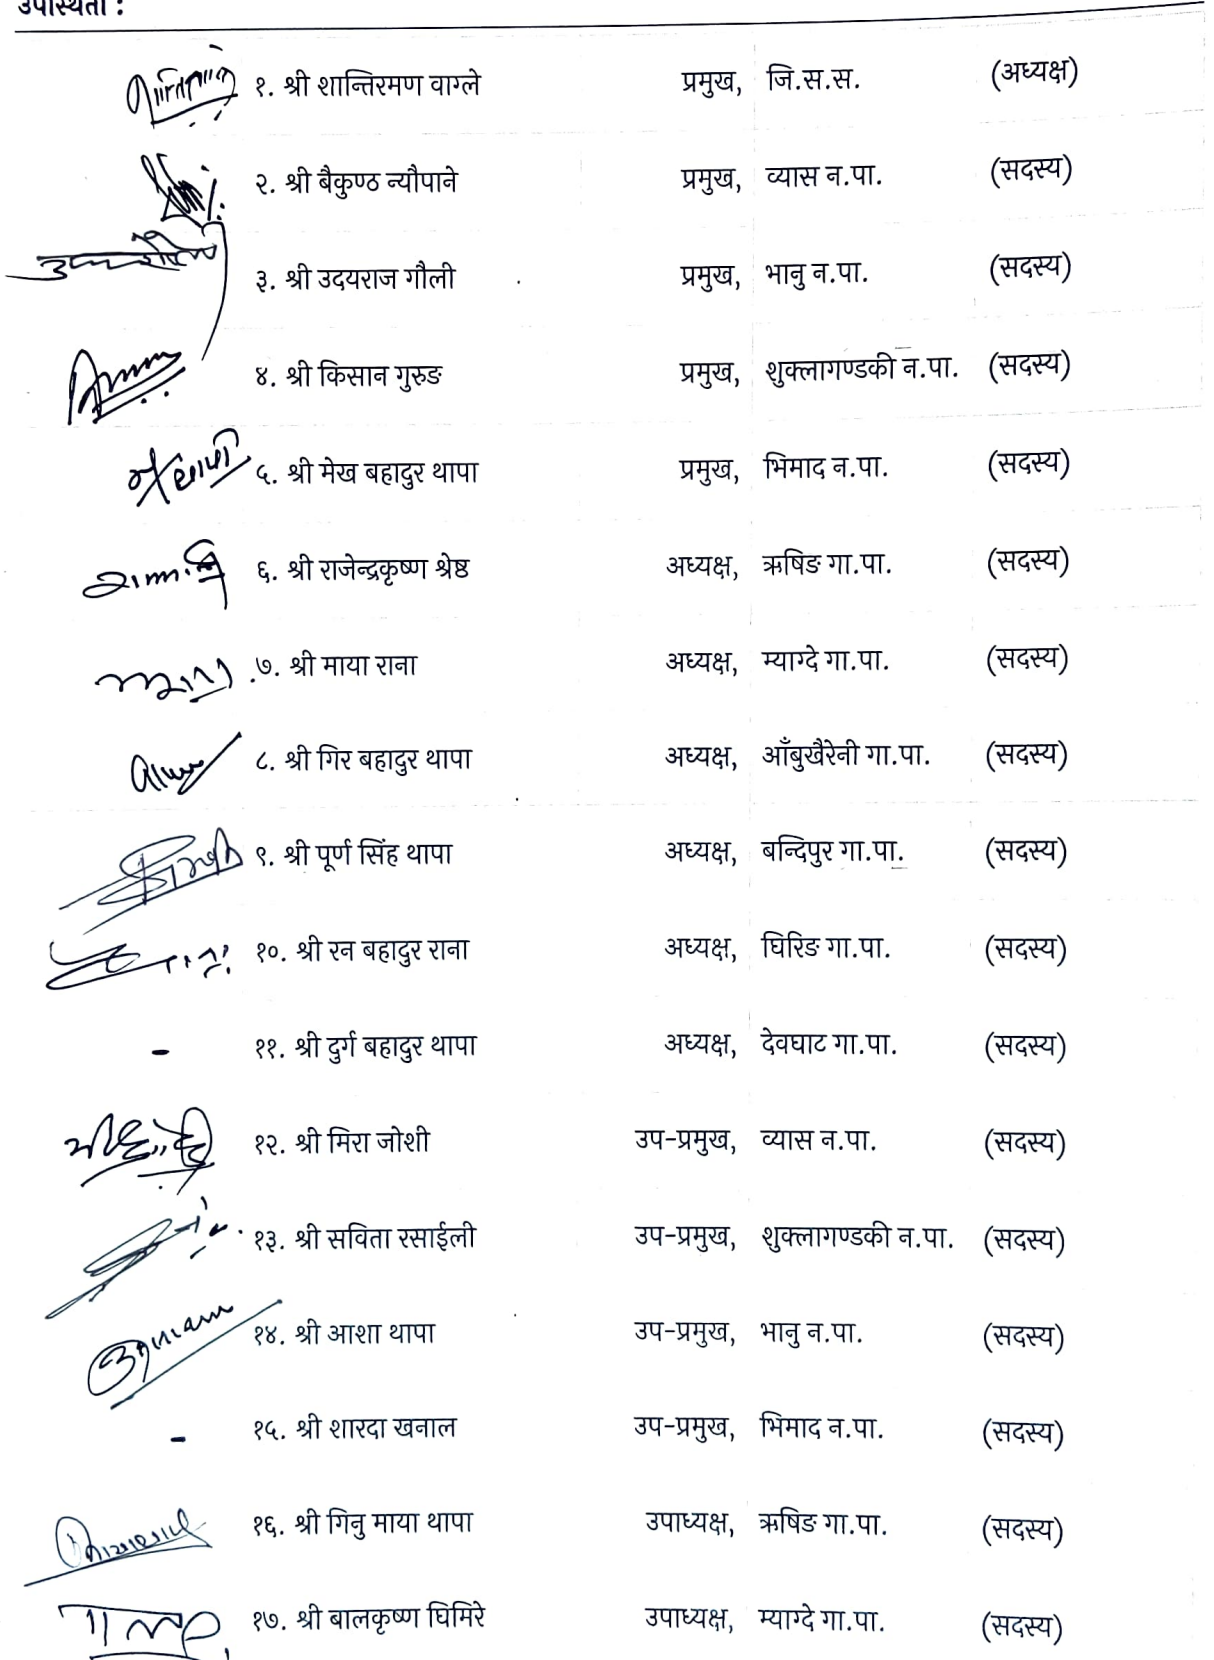 उपस्थिती :
१. श्री शान्तिरमण वाग्ले प्रमुख, जि.स.स. (अध्यक्ष)
२. श्री बैकुण्ठ न्यौपाने प्रमुख, व्यास न.पा. (सदस्य)
३. श्री उदयराज गौली प्रमुख, भानु न.पा. (सदस्य)
४. श्री किसान गुरुङ प्रमुख, शुक्लागण्डकी न.पा. (सदस्य)
५. श्री मेख बहादुर थापा प्रमुख, भिमाद न.पा. (सदस्य)
६. श्री राजेन्द्रकृष्ण श्रेष्ठ अध्यक्ष, ऋषिङ गा.पा. (सदस्य)
७. श्री माया राना अध्यक्ष, म्याग्दे गा.पा. (सदस्य)
८. श्री गिर बहादुर थापा अध्यक्ष, आँबुखैरेनी गा.पा. (सदस्य)
९. श्री पूर्ण सिंह थापा अध्यक्ष, बन्दिपुर गा.पा. (सदस्य)
१०. श्री रन बहादुर राना अध्यक्ष, घिरिङ गा.पा. (सदस्य)
- ११. श्री दुर्ग बहादुर थापा अध्यक्ष, देवघाट गा.पा. (सदस्य)
१२. श्री मिरा जोशी उप-प्रमुख, व्यास न.पा. (सदस्य)
१३. श्री सविता रसाईली उप-प्रमुख, शुक्लागण्डकी न.पा. (सदस्य)
१४. श्री आशा थापा उप-प्रमुख, भानु न.पा. (सदस्य)
- १५. श्री शारदा खनाल उप-प्रमुख, भिमाद न.पा. (सदस्य)
१६. श्री गिनु माया थापा उपाध्यक्ष, ऋषिङ गा.पा. (सदस्य)
१७. श्री बालकृष्ण घिमिरे उपाध्यक्ष, म्याग्दे गा.पा. (सदस्य)